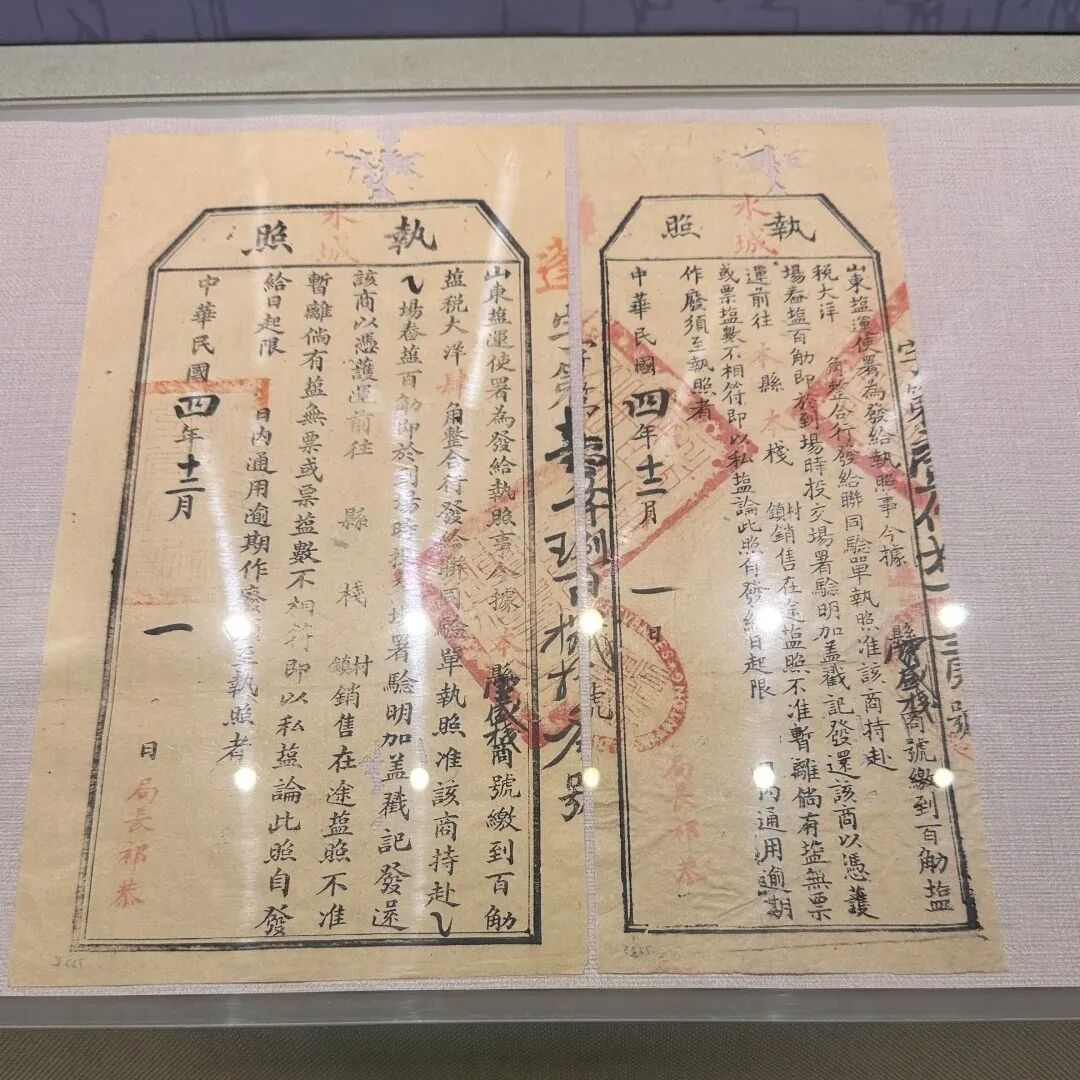 執照
水城
山東塩運使署為發給執照事今據本縣盛棧商號繳到百觔
塩税大洋肆角整合行發給聯同驗單執照准該商持赴
場春塩百觔即於到場時投場署驗明加盖戳記發還
該商以憑護運前往 縣 棧 村鎮銷售在途塩照不准
暫離倘有塩無票或票塩數不相符即以私塩論此照自發
給日起限 日内通用逾期作廢須至執照者
中華民國四年十二月 一 日 局長祁恭
蓬字第 號
執照
水城
山東塩運使署為發給執照事今據 盛棧商號繳到百觔塩
税大洋 角整合行發給聯同驗單執照准該商持赴
場春塩百觔即於到場時投交場署驗明加盖戳記發還該商以憑護
運前往本縣本棧 村鎮銷售在途塩照不准暫離倘有塩無票
或票塩數不相符即以私塩論此照自發給日起限 日内通用逾期
作廢須至執照者
中華民國四年十二月 一 日 局長祁恭